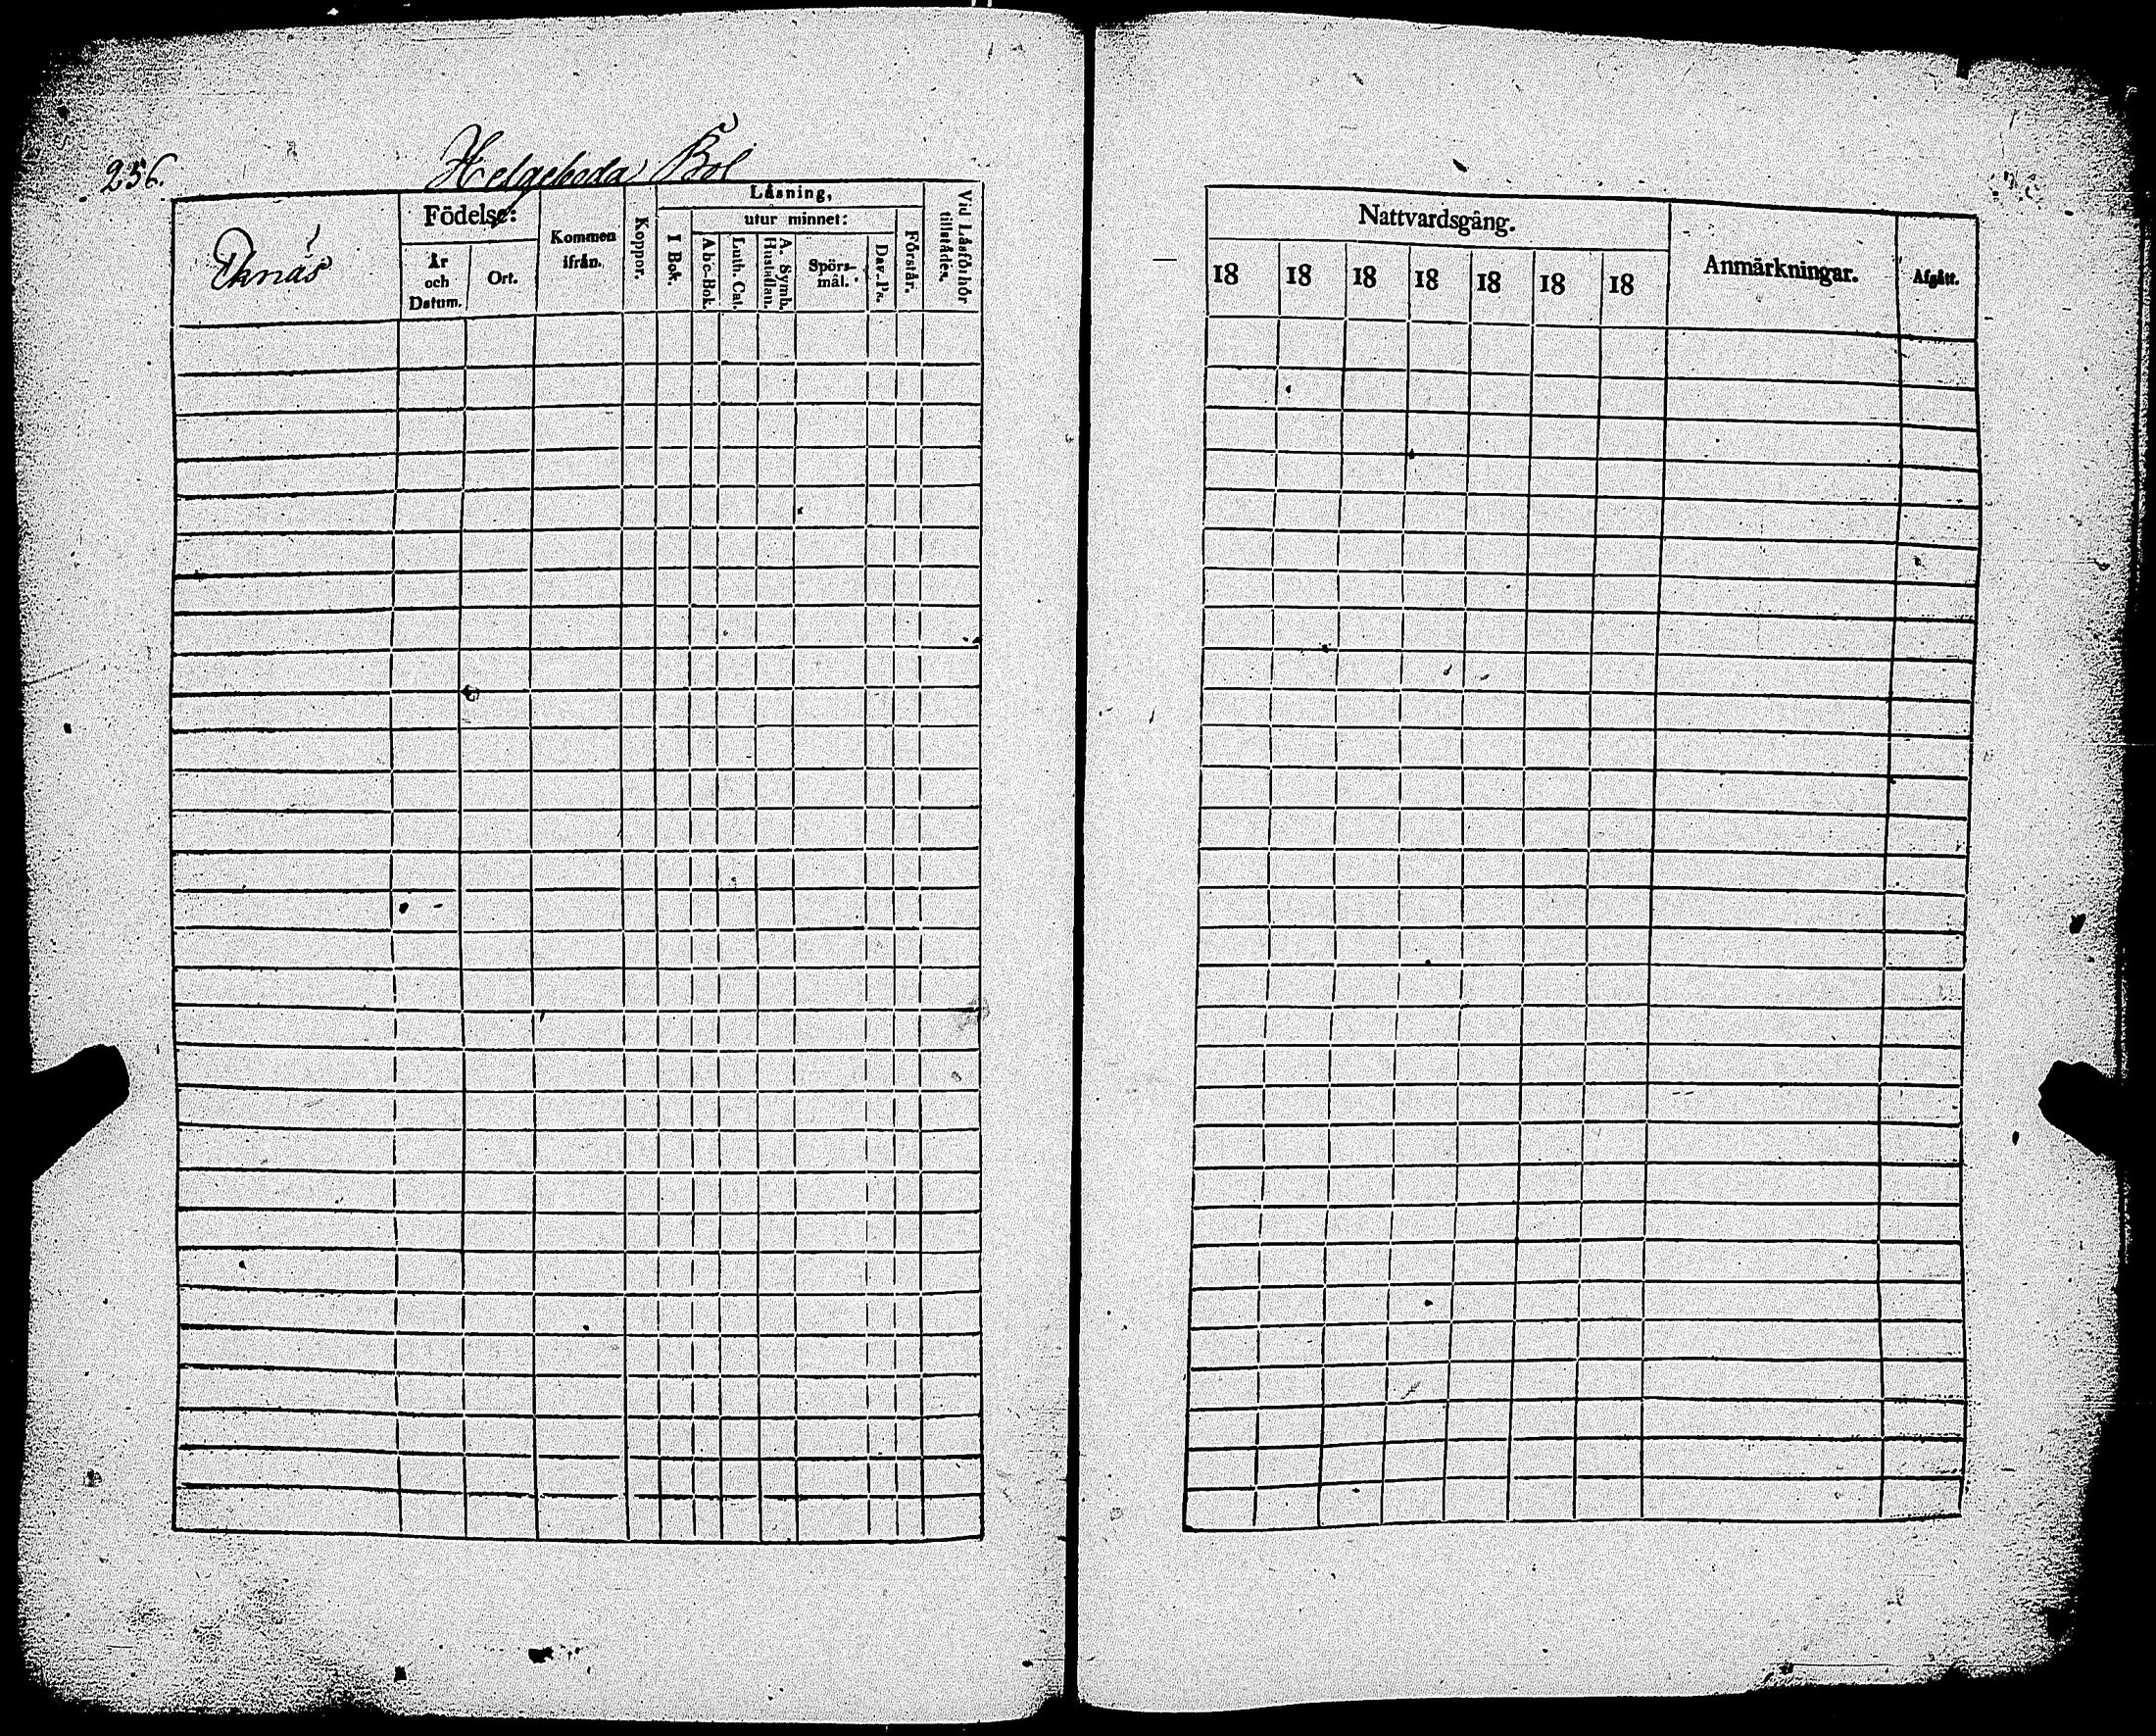 256.
Helgeboda Bol
Eknäs
Födelse:
År och Datum.
Ort.
Kommen ifrån.
Koppor.
Läsning,
I Bok.
utur minnet:
Abc-Bok.
Luth. Cat.
A. Symb. Hustaflan.
Spörs-mål.
Dav. Ps.
Förstår.
Vid Läsförhör tillstädes.
Nattvardsgång.
18 18 18 18 18 18 18
Anmärkningar.
Afgått.